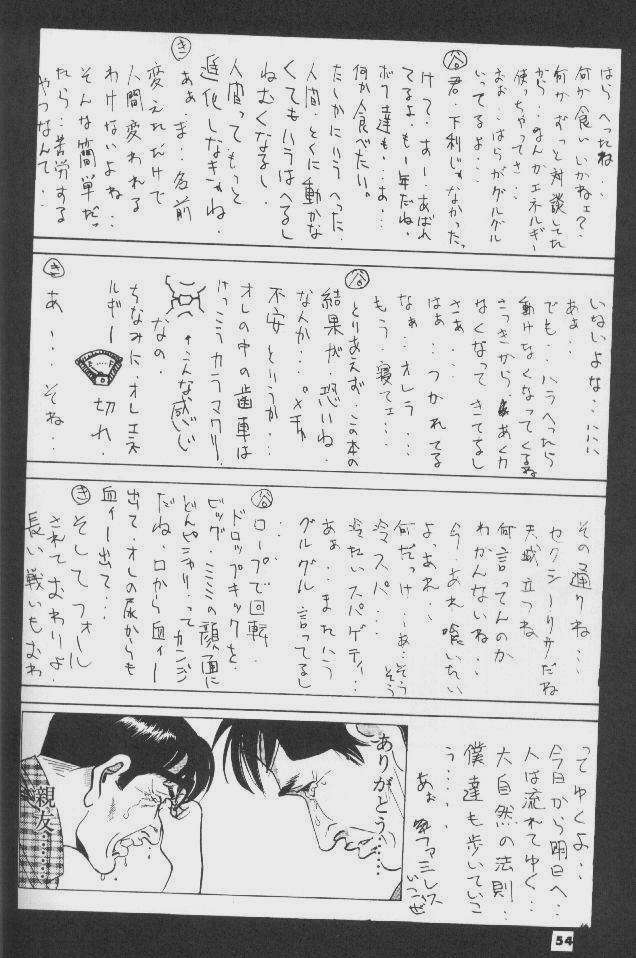 はらへったね・・
何か食いいかねェ？・
何かずっと対談してた
から・・なんかエネルギー
使っちゃってさ・・
おぉ・・はらがグルグル
いってるよ・・・
谷 君・下利じゃなかった
けて・・すー・・あばれ
てるよ・も・年だね・
ボク達も・・ぁ・・・
何か食べたい。
たしかにハラへった・
人間・とくに動かな
くてもハラはへるし
ねむくなるし・
人間って・もっと
進化しなきゃね・
き あぁ・ま・名前
変えただけで
人間変われる
わけないよね・・
そんな簡単だっ
たら・苦労する
やつなんて・・
いないよな・・・
あぁ・・
でも・ハラへったら
動けなくなってくるね
さっきからあく力
なくなってきてるし
さぁ・・・
はぁ・・つかれてる
なぁ・・オレら・・・
もう・寝てェ・・・
谷 とりあえず・この本の
結果が・恐いね・
なんか・・・メチャ
不安というか・・
オレの中の歯車は
けっこうカラマワリ・
↑こんな感じ
なの・
ちなみに・オレエネ
ルギー 切れ・
き あ・・・そね・・
その通りね・・・
セクシーリサだね
天城立つね
何言ってんのか
わかんないね・・・
今・あれ喰いたい
よ・あれ・・
何だっけ・・あ・そう そう
冷スパ・・・
冷たいスパゲティ・・
あぁ・・またハラ
グルグル言ってるし
・・
谷 ロープで回転・
ドロップキックを・
ビッグ・ミミミの顔面に
どんピシャリ・ってカンジ
だね・口から血ィー
出て・オレの尻からも
血ィー出て・・・
き そしてフォール
されておわりよ・
長い戦いもおわ
ってゆくよ・・・
今日から明日へ・・
人は流れてゆく・・
大自然の法則・・
僕達も歩いていこ
う・・・っ
あぉ・ファミレス
いこーぜ
ありがとう……
親友………
54